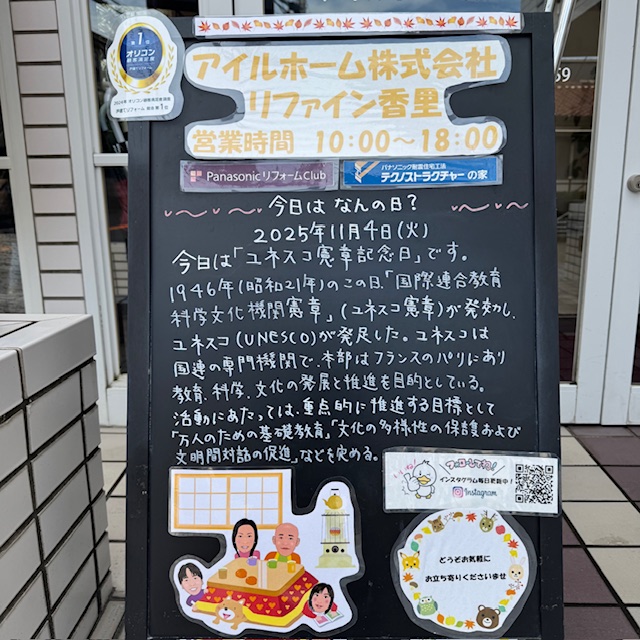 第1位
オリコン
顧客満足度
2024年 オリコン顧客満足度調査
戸建てリフォーム 総合 第1位
アイルホーム株式会社
リファイン香里
営業時間 10:00〜18:00
Panasonic リフォームClub
パナソニック耐震住宅工法
テクノストラクチャーの家
今日は なんの日?
2025年11月4日(火)
今日は「ユネスコ憲章記念日」です。
1946年(昭和21年)のこの日、「国際連合教育
科学文化機関憲章」(ユネスコ憲章)が発効し、
ユネスコ(UNESCO)が発足した。ユネスコは
国連の専門機関で、本部はフランスのパリにあり
教育、科学、文化の発展と推進を目的としている。
活動にあたっては、重点的に推進する目標として
「万人のための基礎教育」「文化の多様性の保護および
文明間対話の促進」などを定める。
フォローしてネ!
インスタグラム毎日更新中!
Instagram
どうぞお気軽に
お立ち寄りくださいませ
59